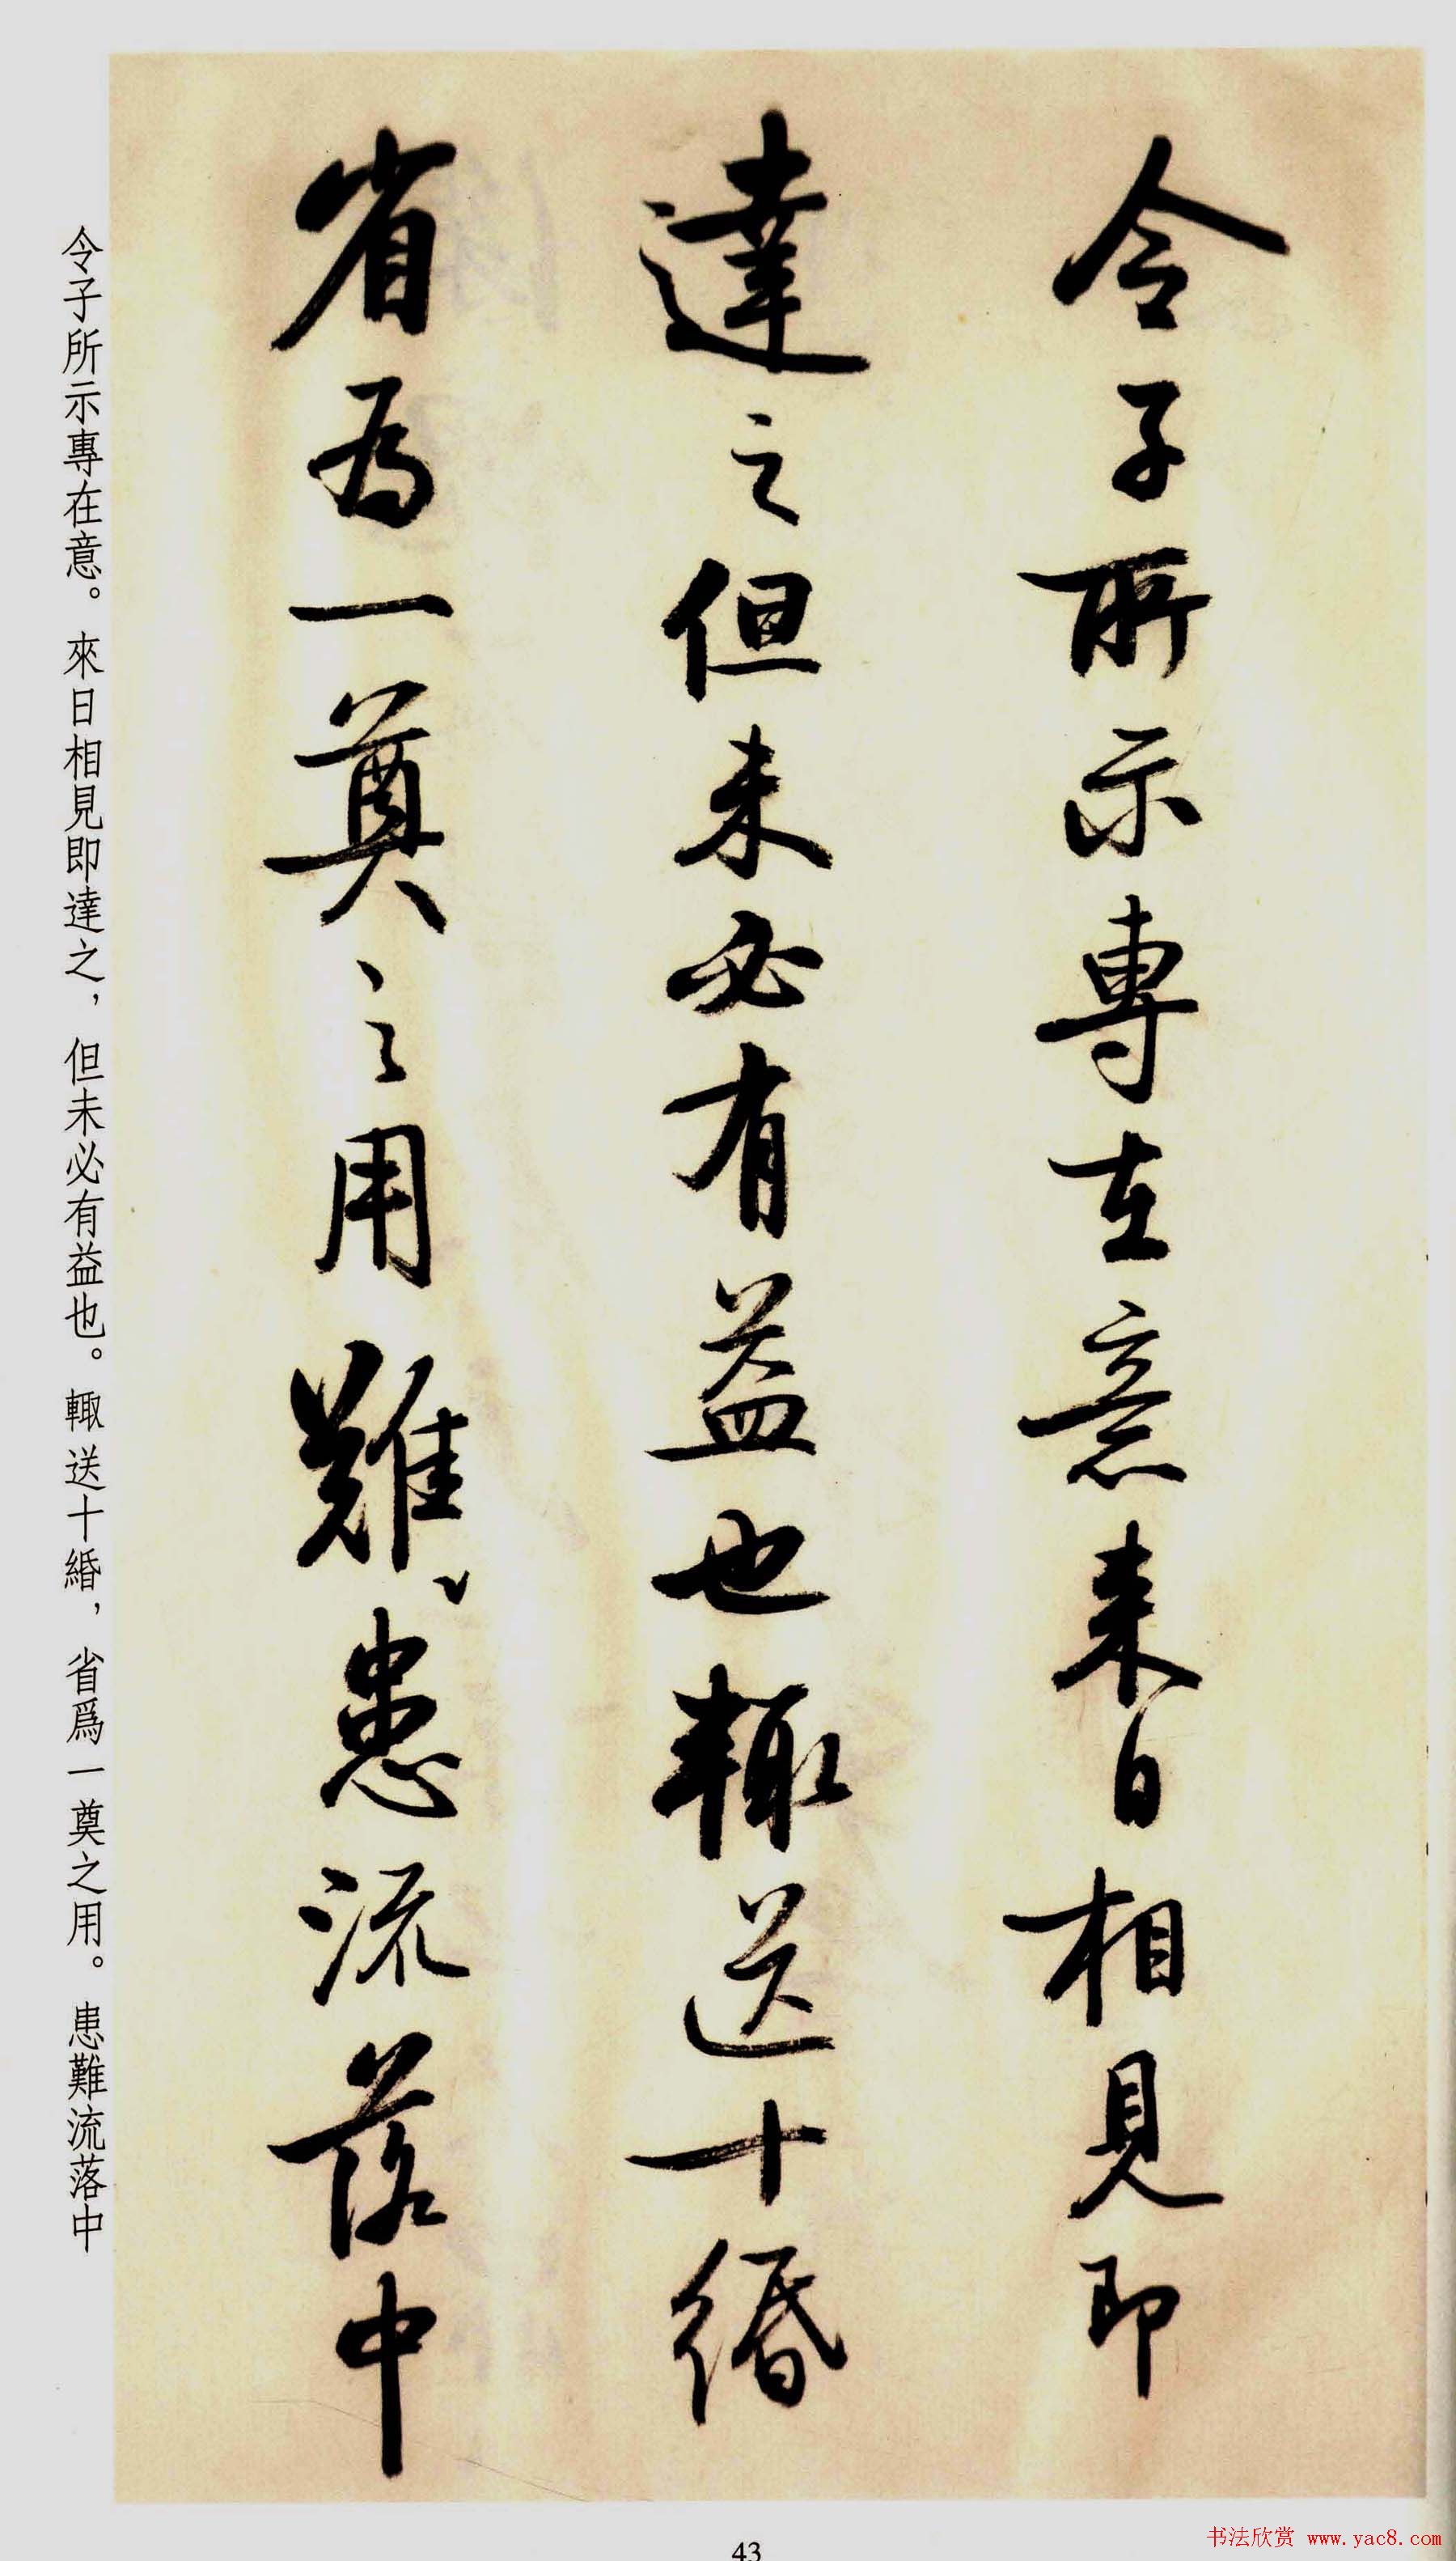 令子所示專在意來日相見即
達之但未必有益也輙送十緡
省為一奠之用難患流落中
令子所示專在意。來日相見即達之，但未必有益也。輙送十緡，省爲一奠之用。患難流落中
43
书法欣赏 www.yac8.com